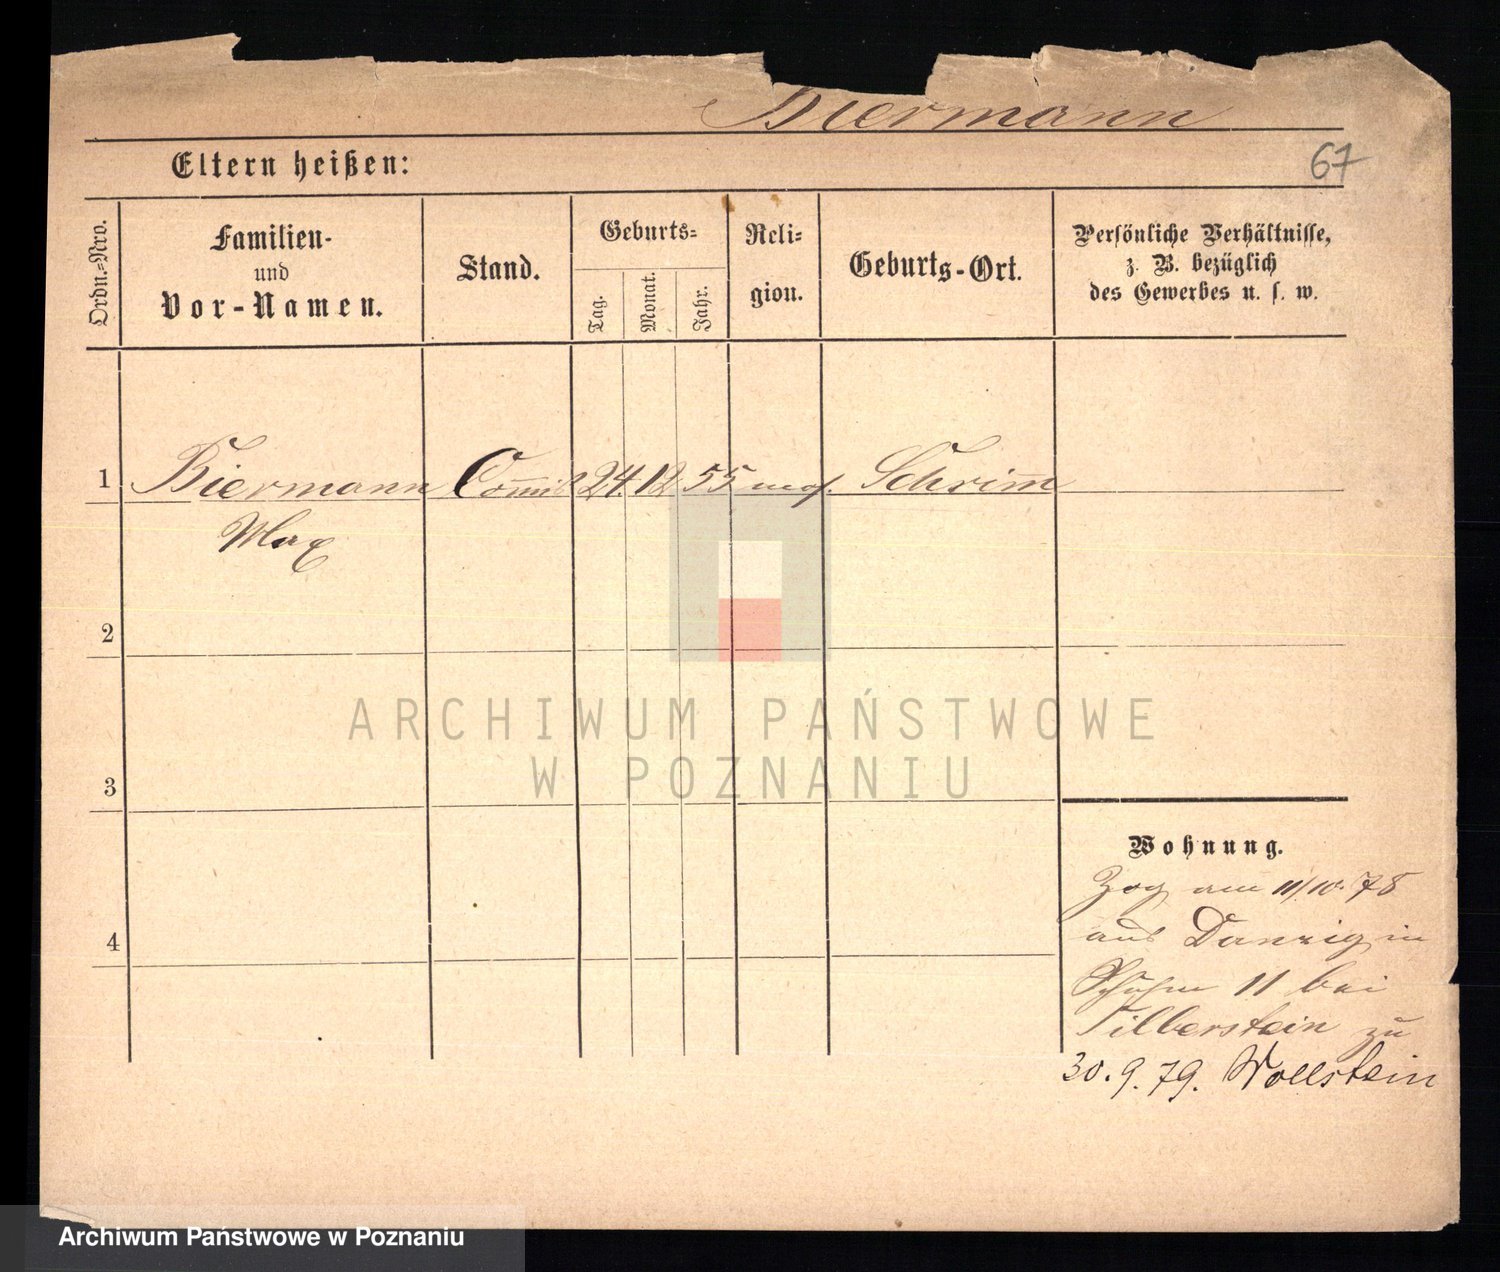 Biermann
Eltern heißen:
67
Ordn.=Nro.
Familien-
und
Vor-Namen.
Stand.
Geburts=
Tag.
Monat.
Jahr.
Reli-
gion.
Geburts-Ort.
Persönliche Verhältnisse,
z. B. bezüglich
des Gewerbes u. s. w.
1 Biermann Com̅is 24. 12 55 mos. Schrim̅
Max
2
3
4
Wohnung.
Zog am 11/10. 78
aus Danzig in
11 bei
Silberstein zu
30. 9. 79. Wollstein
ARCHIWUM PAŃSTWOWE
W POZNANIU
Archiwum Państwowe w Poznaniu